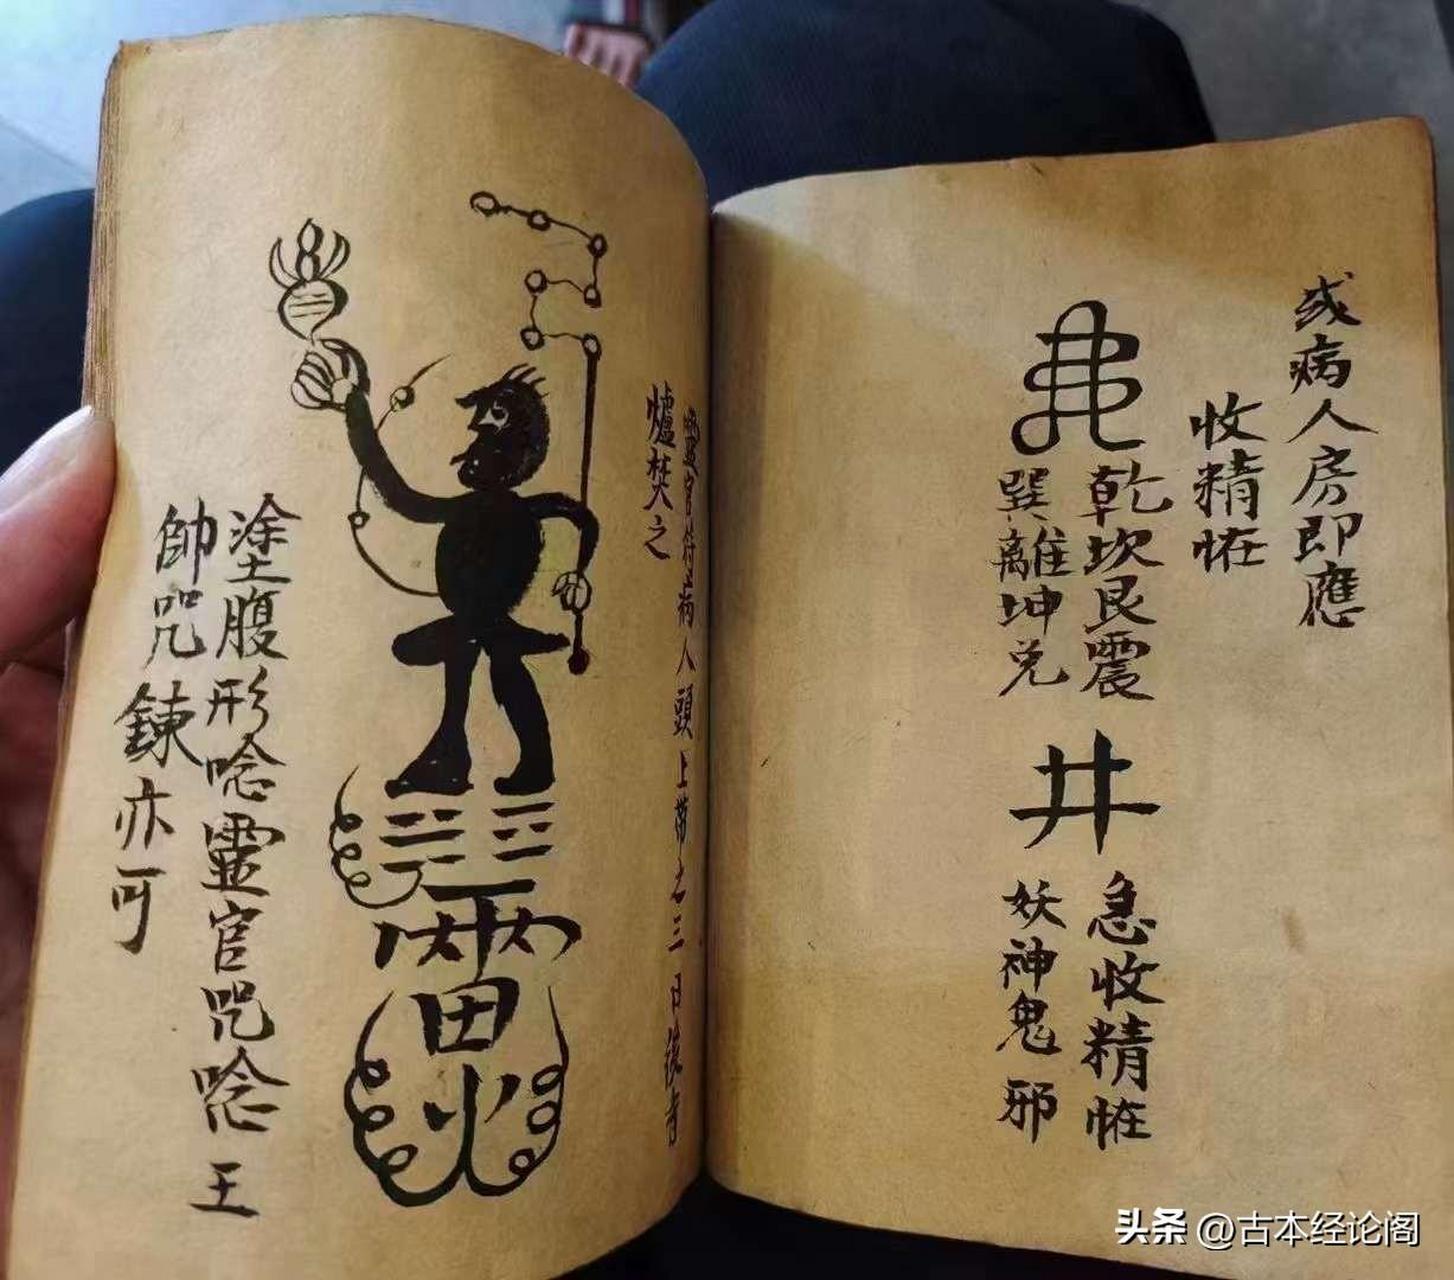 或病人房即應
收精恠
乾坎艮震
巽離坤兑
井
急收精恠
妖神鬼邪
靈官符病人頭上带之三日後寺
爐焚之
雷火
塗腹形唸靈官咒唸王
帥咒鍊亦可
头条 @古本经论阁